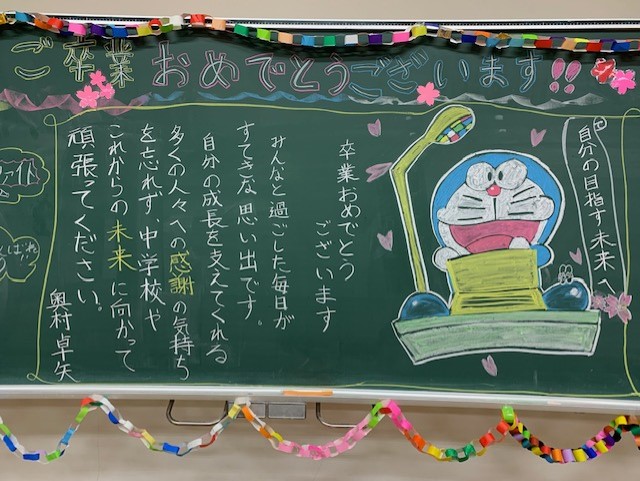 ご卒業おめでとうございます!!
自分の目指す未来へ
卒業おめでとう
ございます
みんなと過ごした毎日が
すてきな思い出です。
自分の成長を支えてくれる
多くの人々への感謝の気持ち
を忘れず、中学校や
これからの未来に向かって
頑張ってください。
奥村卓矢
ファイト